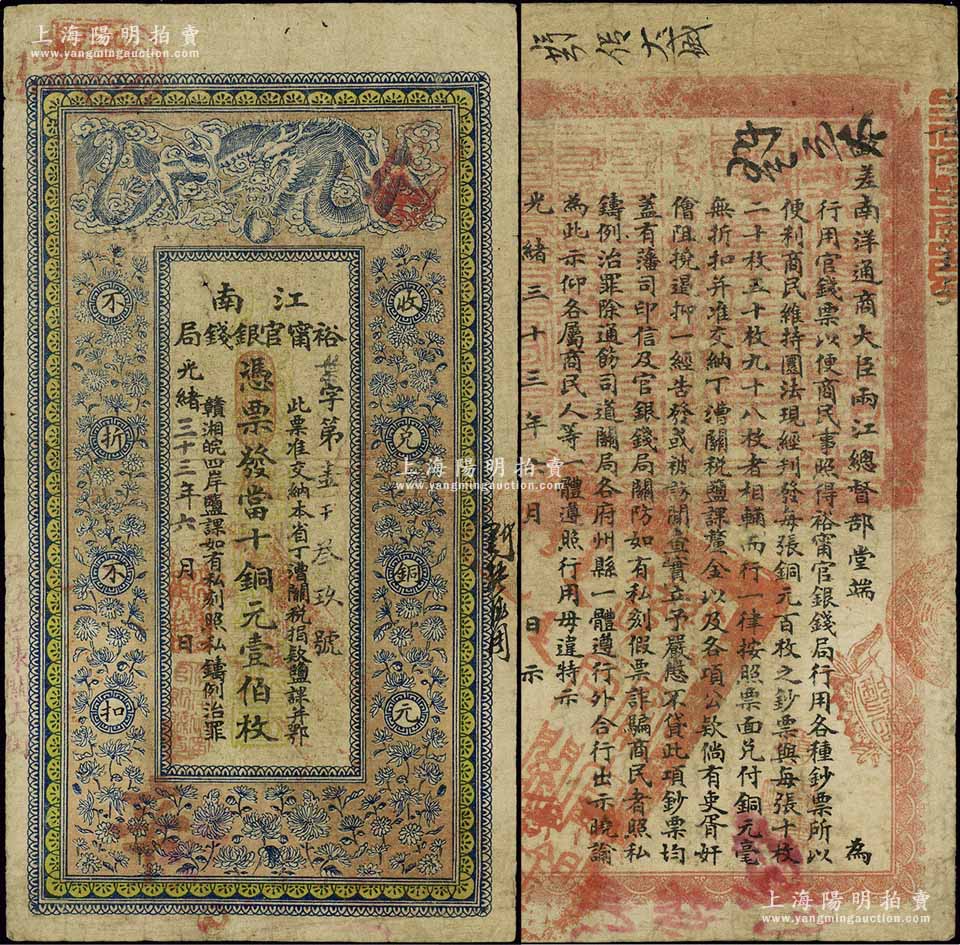 上海陽明拍賣
www.yangmingauction.com
江南
裕甯官銀錢局
字第壹千叁玖號
此票准交納本省丁漕關稅指欵鹽課并鄂
憑票發當十銅元壹佰枚
贛湘皖四岸鹽課如有私刻照私鑄例治罪
光緒三十三年六月日
收兌銅元
不折不扣
上海陽明拍賣
www.yangmingauction.com
上海陽明拍賣
www.yangmingauction.com
差南洋通商大臣兩江總督部堂端
為
行用官錢票以便商民事照得裕甯官銀錢局行用各種鈔票所以
便利商民維持圜法現經刋發每張銅元百枚之鈔票與每張十枚
二十枚五十枚九十八枚者相輔而行一律按照票面兌付銅元毫
無折扣并准交納丁漕關稅鹽課釐金以及各項公欵倘有吏胥奸
儈阻撓遏抑一經告發或被訪聞查實立予嚴懲不貸此項鈔票均
蓋有藩司印信及官銀錢局關防如有私刻假票詐騙商民者照私
鑄例治罪除通飭司道關局各府州縣一體遵行外合行出示曉諭
為此示仰各屬商民人等一體遵照行用毋違特示
光緒三十三年六月日示
上海陽明拍賣
www.yangmingauction.com